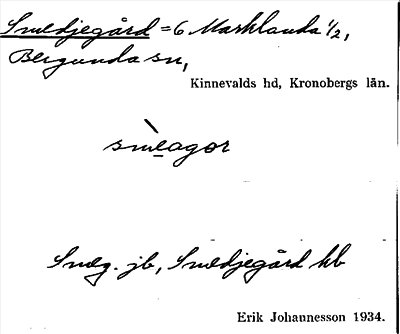 Smedjegård = 6 Marklanda 1/2,
Bergunda sn,
Kinnevalds hd, Kronobergs län.
smèagor
Smeg. jb, Smedjegård kb
Erik Johannesson 1934.